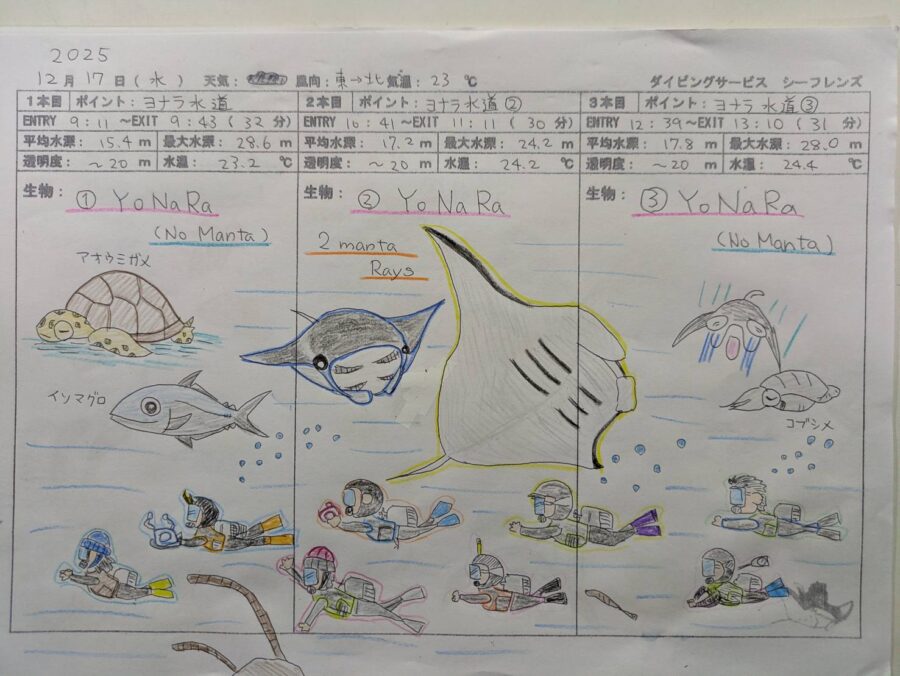 2025
12月 17日(水) 天気: 風向:東→北 気温: 23 ℃ ダイビングサービス シーフレンズ
1本目 ポイント:ヨナラ水道
ENTRY 9:11 ~EXIT 9:43 (32分)
平均水深: 15.4 m 最大水深: 28.6 m
透明度: ~20 m 水温: 23.2 ℃
生物: ① YoNaRa
(No Manta)
アオウミガメ
イソマグロ
2本目 ポイント:ヨナラ水道②
ENTRY 10:41 ~EXIT 11:11 (30分)
平均水深: 17.2 m 最大水深: 24.2 m
透明度: ~20 m 水温: 24.2 ℃
生物: ② YoNaRa
2 manta
Rays
3本目 ポイント:ヨナラ水道③
ENTRY 12:39 ~EXIT 13:10 (31分)
平均水深: 17.8 m 最大水深: 28.0 m
透明度: ~20 m 水温: 24.4 ℃
生物: ③ YoNaRa
(No Manta)
コブシメ